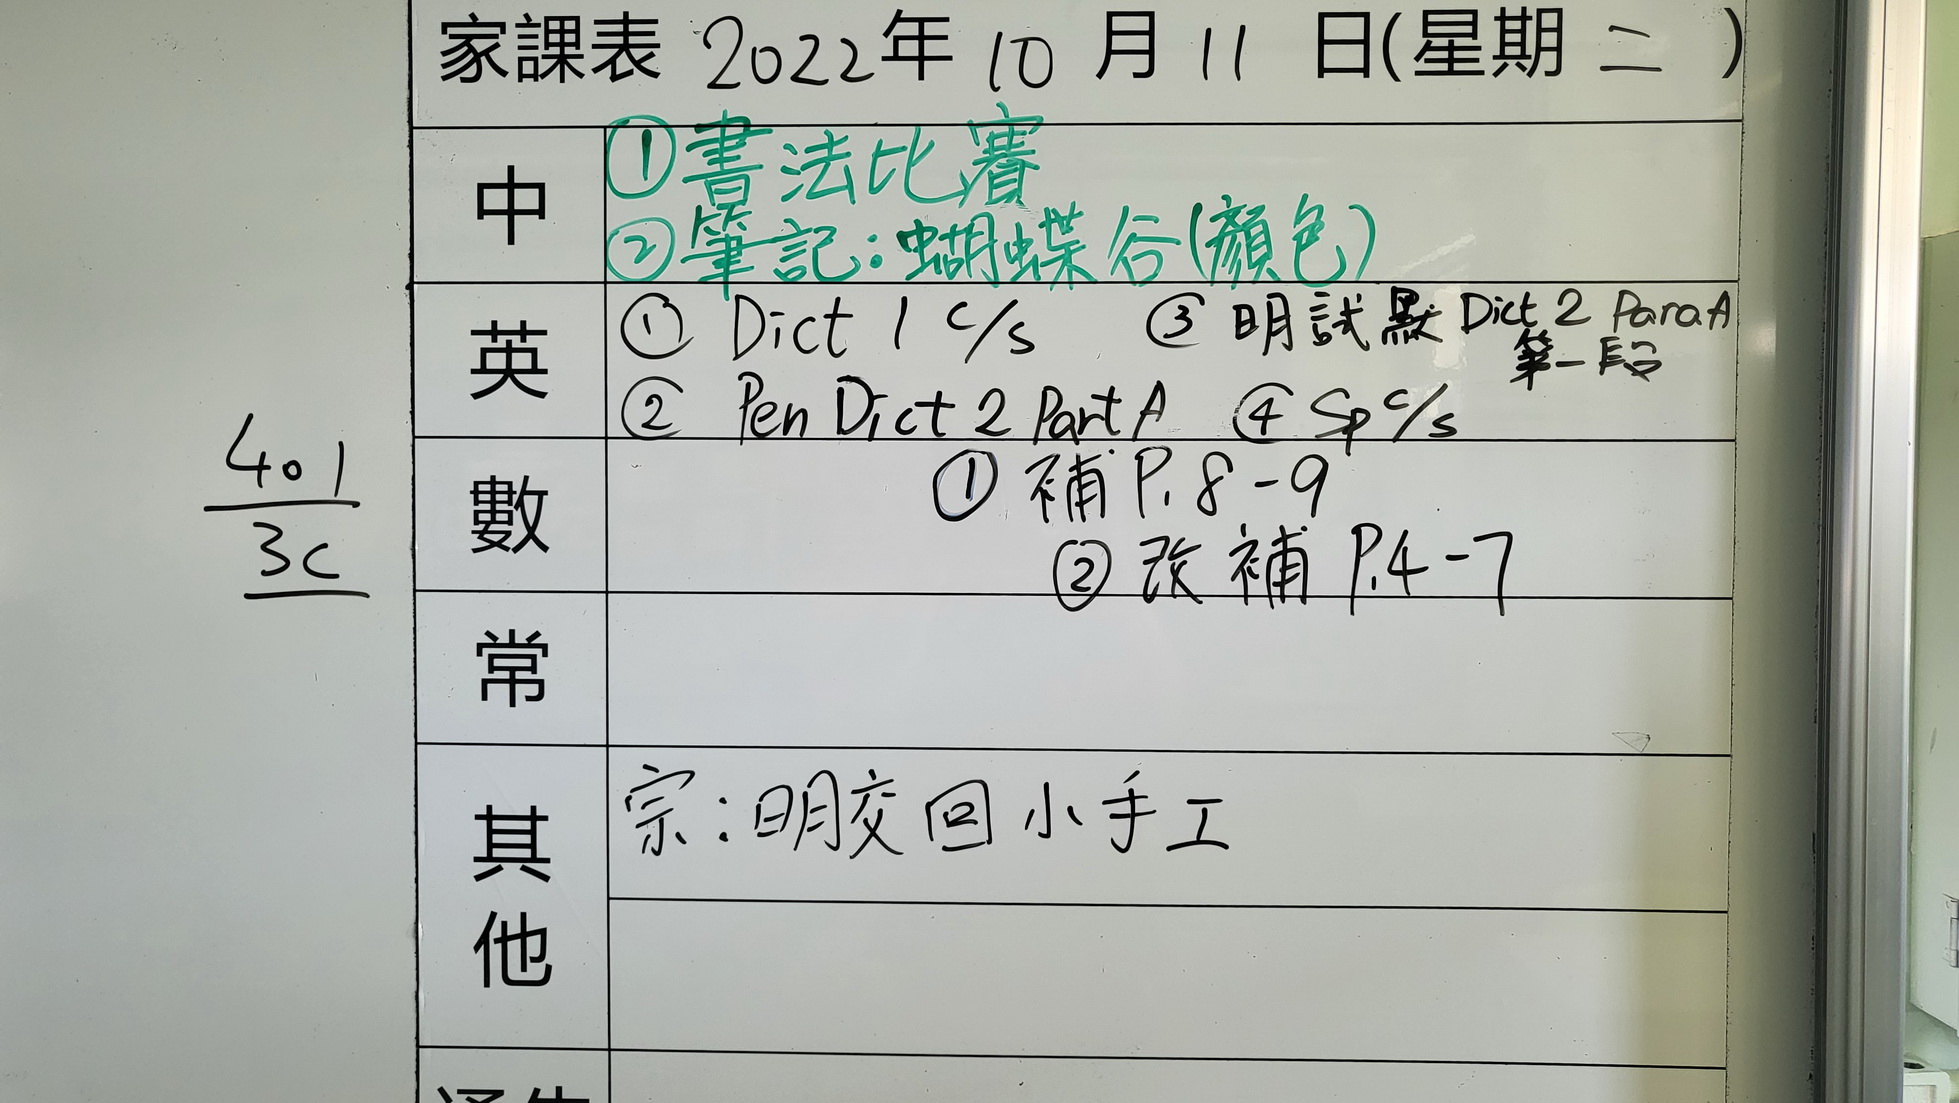 家課表 2022年 10 月 11 日(星期 二 )
中
①書法比賽
②筆記:蝴蝶谷(顏色)
英
① Dict 1 c/s ③ 明試默 Dict 2 Para A
第一段
② Pen Dict 2 Part A ④ Sp c/s
數
① 補 P. 8-9
② 改補 P.4-7
401
3C
常
其他
宗:明交回小手工
通告